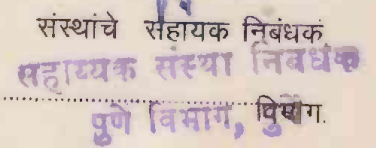 संस्थांचे सहायक निबंधक
सहाय्यक संस्था निबंधक
विभाग.
पुणे विभाग, पुणे